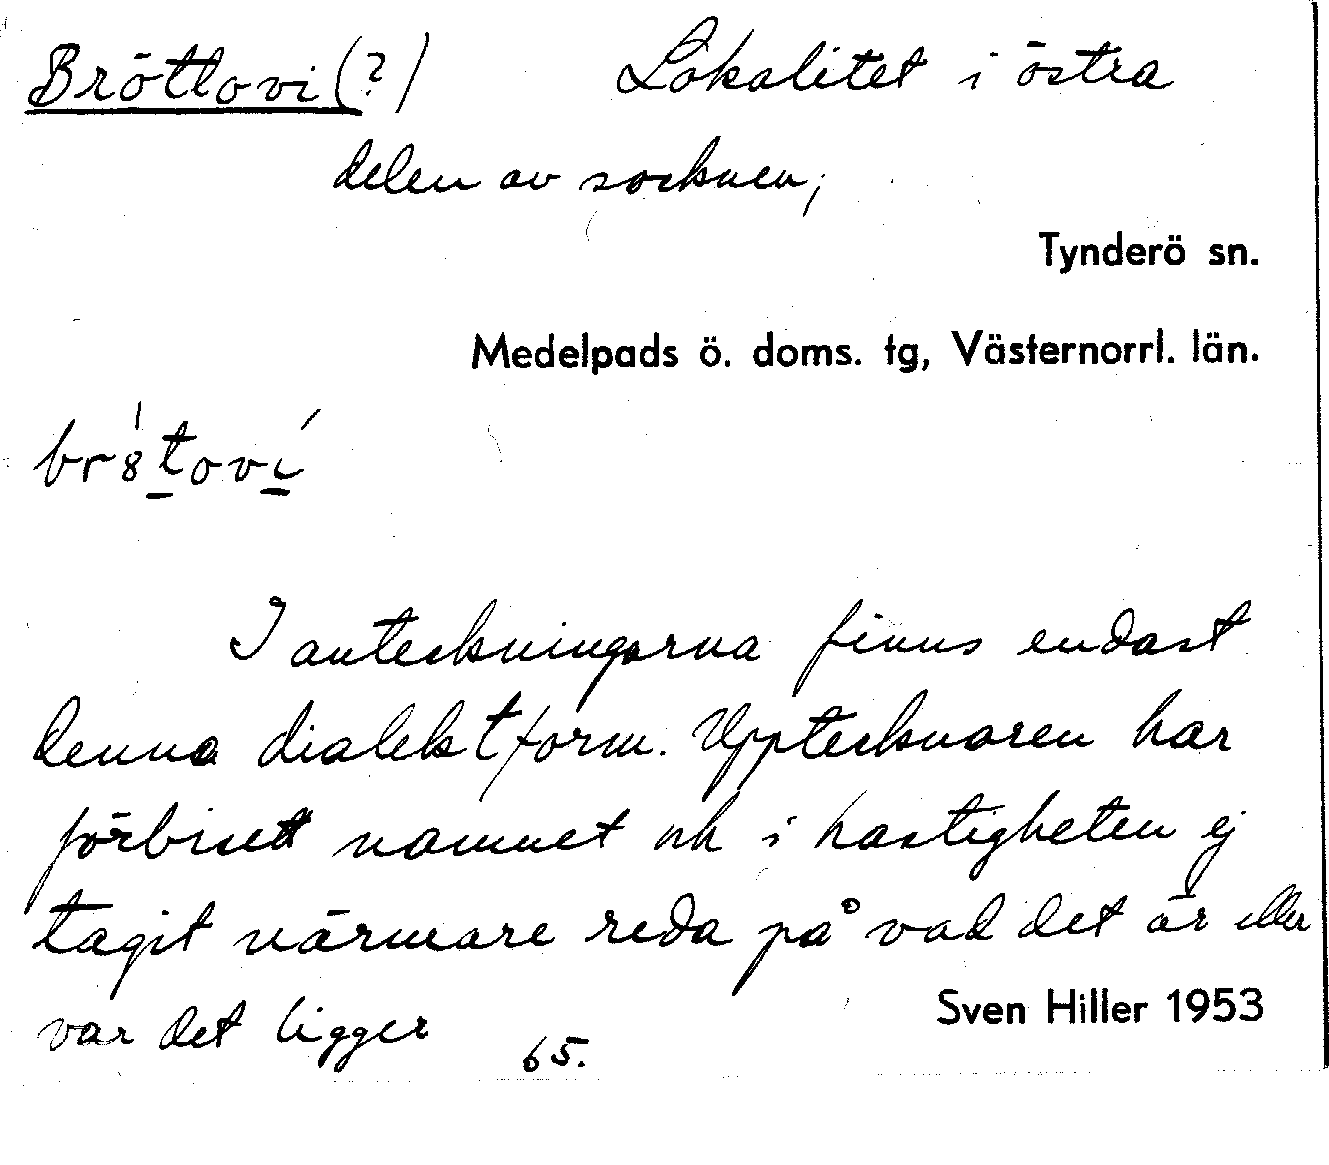 Bröttovi (?) Lokalitet i östra
delen av socknen;
Tynderö sn.
Medelpads ö. doms. tg, Västernorrl. län.
br8tovi
I anteckningarna finns endast
denna dialektform. Upptecknaren har
förbisett namnet och i hastigheten ej
tagit närmare reda på vad det är eller
var det ligger
Sven Hiller 1953
65.